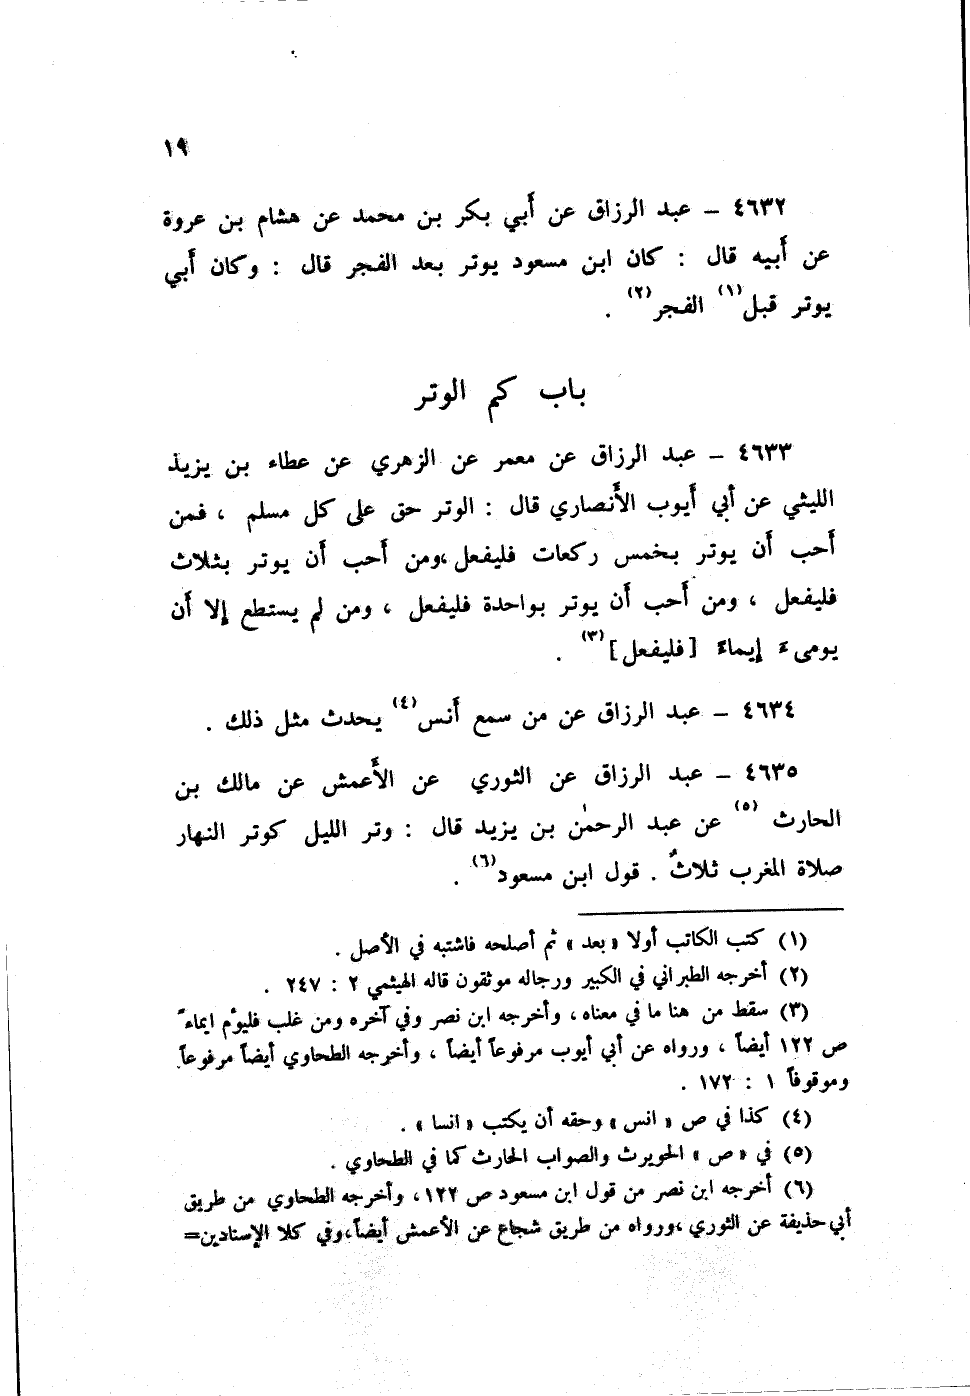 ١٩
٤٦٣٢ – عبد الرزاق عن أبي بكر بن محمد عن هشام بن عروة
عن أبيه قال : كان ابن مسعود يوتر بعد الفجر قال : وكان أبي
يوتر قبل(١) الفجر(٢) .
باب كم الوتر
٤٦٣٣ – عبد الرزاق عن معمر عن الزهري عن عطاء بن يزيد
الليثي عن أبي أيوب الأنصاري قال : الوتر حق على كل مسلم ، فمن
أحب أن يوتر بخمس ركعات فليفعل ،ومن أحب أن يوتر بثلاث
فليفعل ، ومن أحب أن يوتر بواحدة فليفعل ، ومن لم يستطع إلا أن
يومىء إيماءً [فليفعل](٣) .
٤٦٣٤ – عبد الرزاق عن من سمع أنس(٤) يحدث مثل ذلك .
٤٦٣٥ – عبد الرزاق عن الثوري عن الأعمش عن مالك بن
الحارث (٥) عن عبد الرحمٰن بن يزيد قال : وتر الليل كوتر النهار
صلاة المغرب ثلاثٌ . قول ابن مسعود(٦) .
(١) كتب الكاتب أولا « بعد » ثم أصلحه فاشتبه في الأصل .
(٢) أخرجه الطبراني في الكبير ورجاله موثقون قاله الهيثمي ٢ : ٢٤٧ .
(٣) سقط من هنا ما في معناه ، وأخرجه ابن نصر وفي آخره ومن غلب فليؤم ايماءً
ص ١٢٢ أيضاً ، ورواه عن أبي أيوب مرفوعاً أيضاً ، وأخرجه الطحاوي أيضاً مرفوعاً
وموقوفاً ١ : ١٧٢ .
(٤) كذا في ص « انس » وحقه أن يكتب « انسا » .
(٥) في « ص » الحويرث والصواب الحارث كما في الطحاوي .
(٦) أخرجه ابن نصر من قول ابن مسعود ص ١٢٢ ، وأخرجه الطحاوي من طريق
أبي حذيفة عن الثوري ،ورواه من طريق شجاع عن الأعمش أيضاً،وفي كلا الإسنادين=